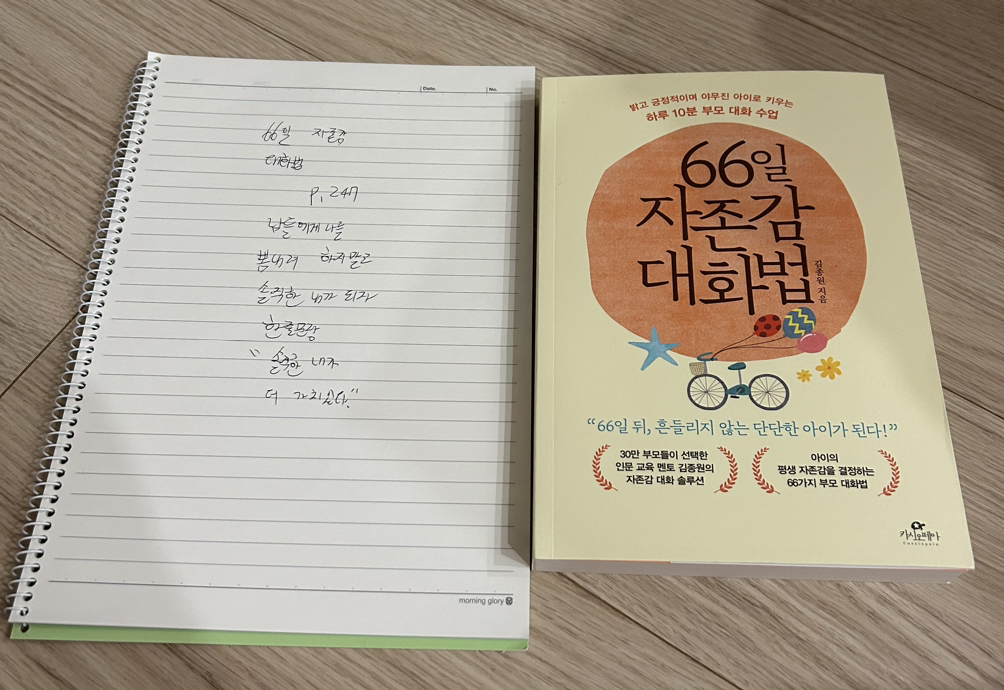 Date.
No.
66일 자존감
대화법
p. 247
남들에게 나를
뽐내려 하지말고
솔직한 내가 되자
한줄문장
"솔직한 내가
더 가치있다."
morning glory
밝고 긍정적이며 야무진 아이로 키우는
하루 10분 부모 대화 수업
66일
자존감
대화법
김종원 지음
“66일 뒤, 흔들리지 않는 단단한 아이가 된다!”
30만 부모들이 선택한
인문 교육 멘토 김종원의
자존감 대화 솔루션
아이의
평생 자존감을 결정하는
66가지 부모 대화법
카시오페아
Cassiopeia